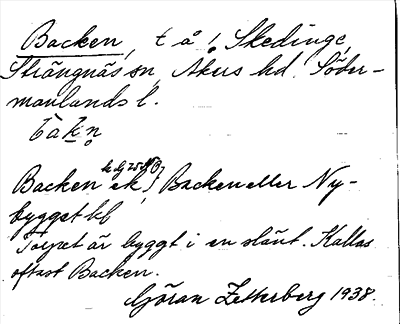 Backen, t å l Skedinge,
Strängnäs sn, Åkers hd. Söder-
manlands l.
bak̲n̥
Backen ek, Backen eller Ny-
bygget kl
Torpet är byggt i en slänt. Kallas
oftast Backen.
Göran Zetterberg 1938.